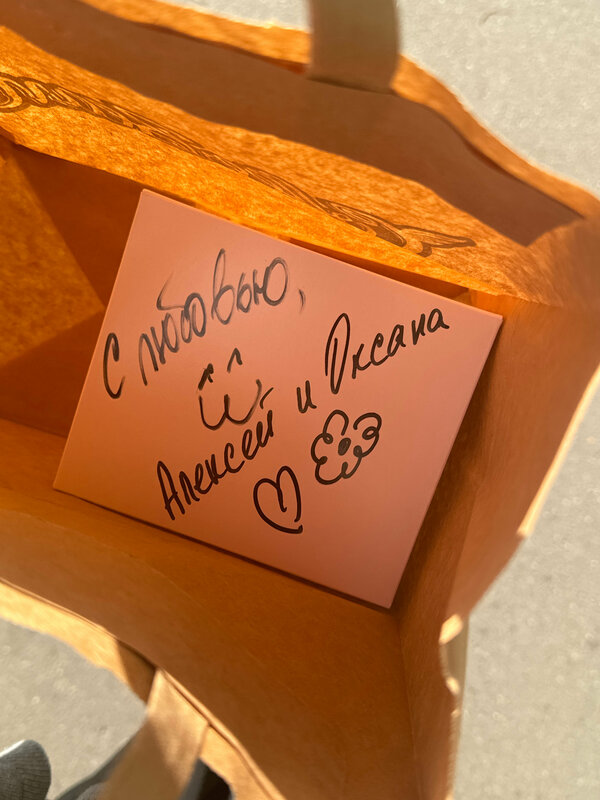 С любовью,
Алексей и Оксана